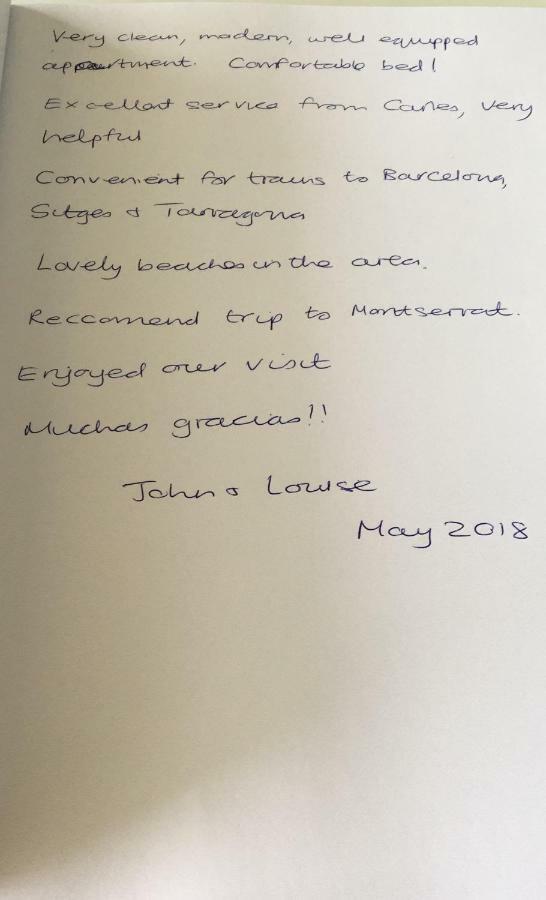 Very clean, modern, well equipped
appartment. Comfortable bed!
Excellent service from Carles, very
helpful
Convenient for trains to Barcelona,
Sitges & Tarragona
Lovely beaches in the area.
Reccomend trip to Montserrat.
Enjoyed our visit
Muchas gracias!!
John & Louise
May 2018